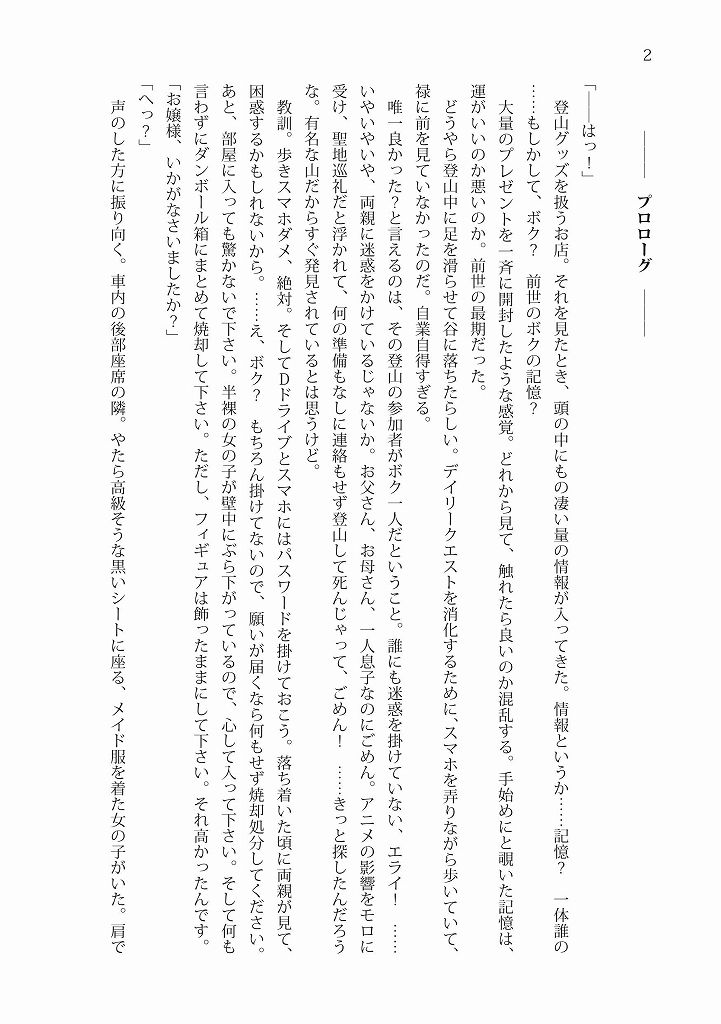 2
―― プロローグ ――
「――はっ！」
登山グッズを扱うお店。それを見たとき、頭の中にもの凄い量の情報が入ってきた。情報というか……記憶？　一体誰の
……もしかして、ボク？　前世のボクの記憶？
大量のプレゼントを一斉に開封したような感覚。どれから見て、触れたら良いのか混乱する。手始めにと覗いた記憶は、
運がいいのか悪いのか。前世の最期だった。
どうやら登山中に足を滑らせて谷に落ちたらしい。デイリークエストを消化するために、スマホを弄りながら歩いていて、
禄に前を見ていなかったのだ。自業自得すぎる。
唯一良かった？と言えるのは、その登山の参加者がボク一人だということ。誰にも迷惑を掛けていない、エライ！　……
いやいやいや、両親に迷惑をかけているじゃないか。お父さん、お母さん、一人息子なのにごめん。アニメの影響をモロに
受け、聖地巡礼だと浮かれて、何の準備もなしに連絡もせず登山して死んじゃって、ごめん！　……きっと探したんだろう
な。有名な山だからすぐ発見されているとは思うけど。
教訓。歩きスマホダメ、絶対。そしてDドライブとスマホにはパスワードを掛けておこう。落ち着いた頃に両親が見て、
困惑するかもしれないから。……え、ボク？　もちろん掛けてないので、願いが届くなら何もせず焼却処分してください。
あと、部屋に入っても驚かないで下さい。半裸の女の子が壁中にぶら下がっているので、心して入って下さい。そして何も
言わずにダンボール箱にまとめて焼却して下さい。ただし、フィギュアは飾ったままにして下さい。それ高かったんです。
「お嬢様、いかがなさいましたか？」
「へっ？」
声のした方に振り向く。車内の後部座席の隣。やたら高級そうな黒いシートに座る、メイド服を着た女の子がいた。肩で